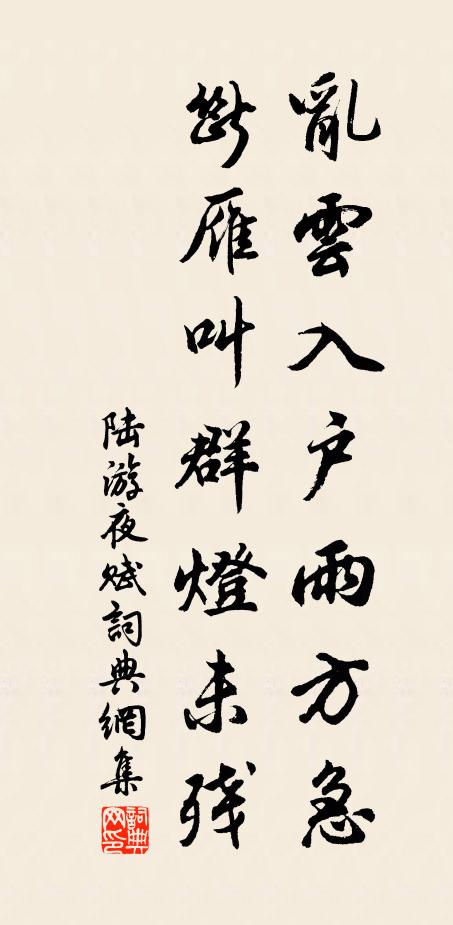 亂雲入户雨方急
斷雁叫群燈未殘
陆游夜赋詞典網集
詞典網印